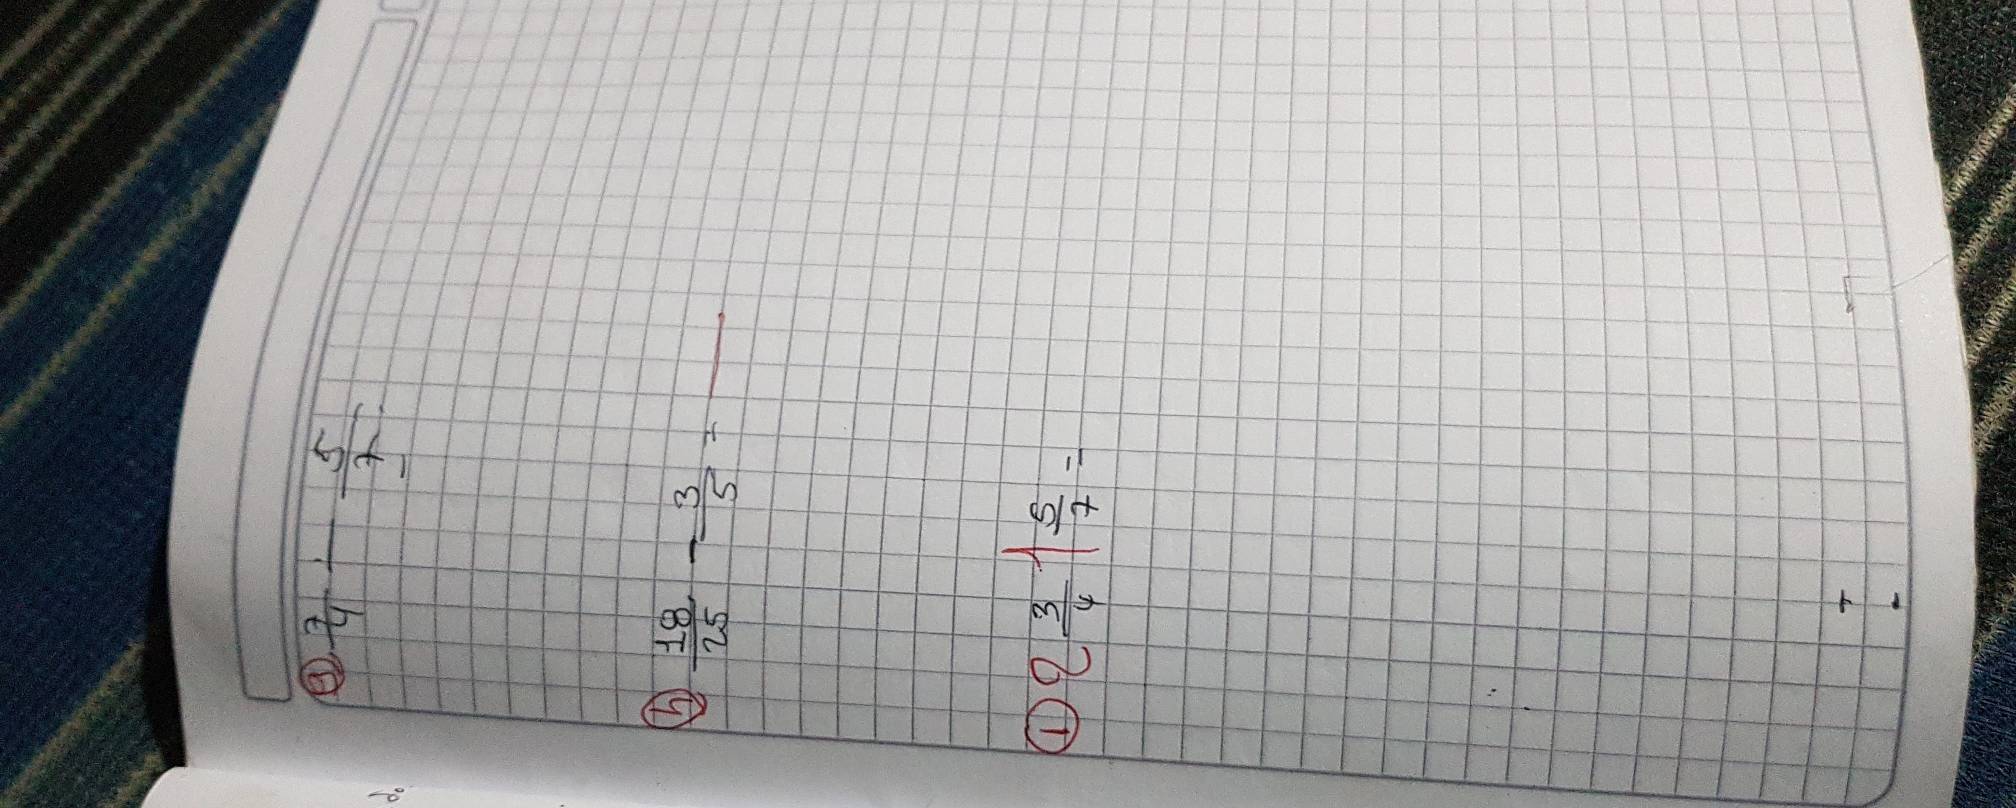 ③ 7/4 - 5/7 =
④ 18/25 - 3/5 =
① 2 3/4 1 5/7 =